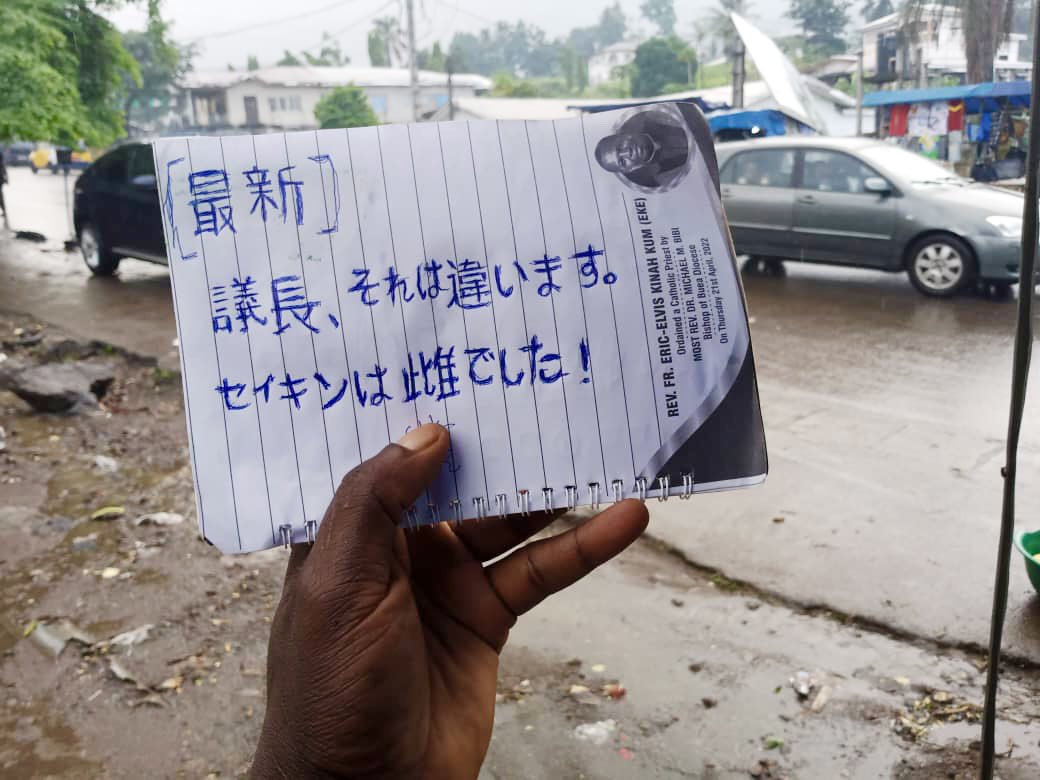 [最新]
議長、それは違います。
セイキンは雌でした!
REV. FR. ERIC-ELVIS KINAH KUM (EKE)
Ordained a Catholic Priest by
MOST REV. DR. MICHAEL M. BIBI
Bishop of Buea Diocese
On Thursday 21st April, 2022